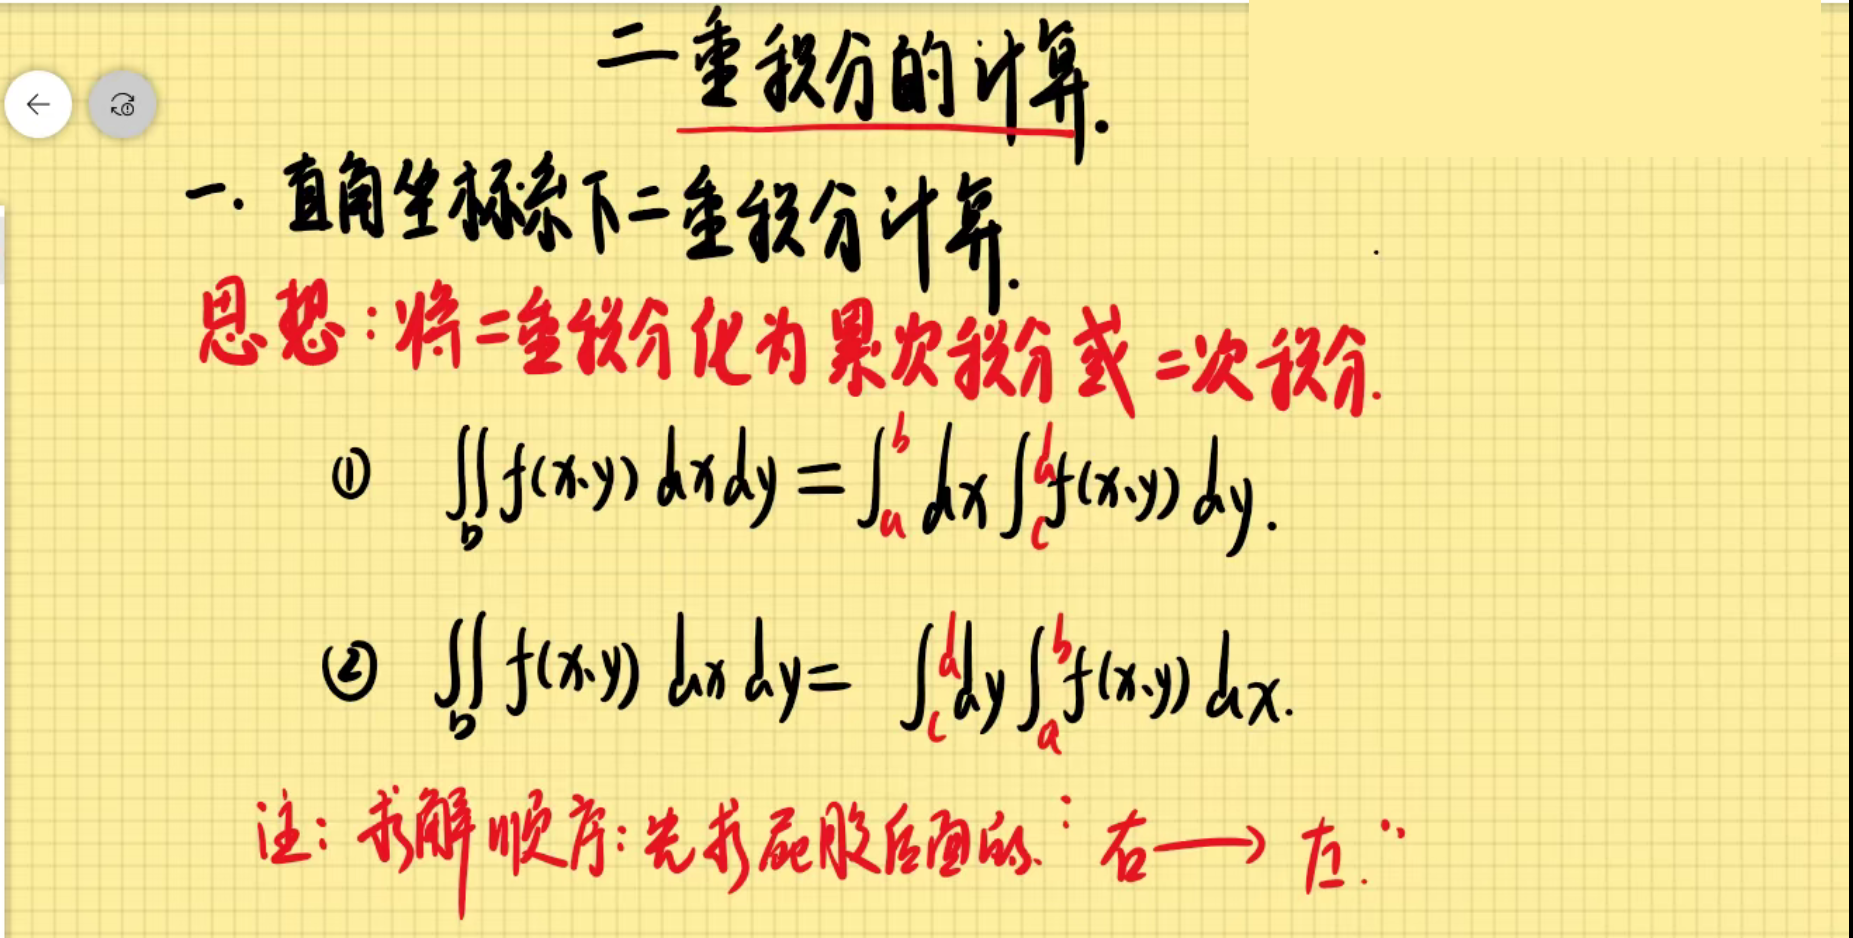 二重积分的计算.
一. 直角坐标系下二重积分计算.
思想:将二重积分化为累次积分或二次积分.
① ∬_D f(x,y) dxdy = ∫_a^b dx ∫_c^d f(x,y) dy.
② ∬_D f(x,y) dxdy = ∫_c^d dy ∫_a^b f(x,y) dx.
注:求解顺序:先求屁股后面的. "右→左."